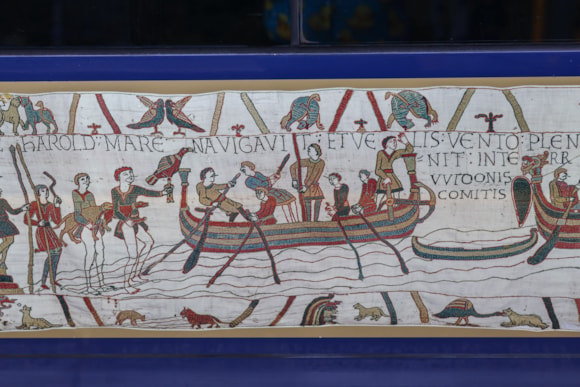 HAROLD: MARE: NAVIGAVIT: ET VELIS: VENTO: PLEN
NIT: INTERR
VVIDONIS
COMITIS